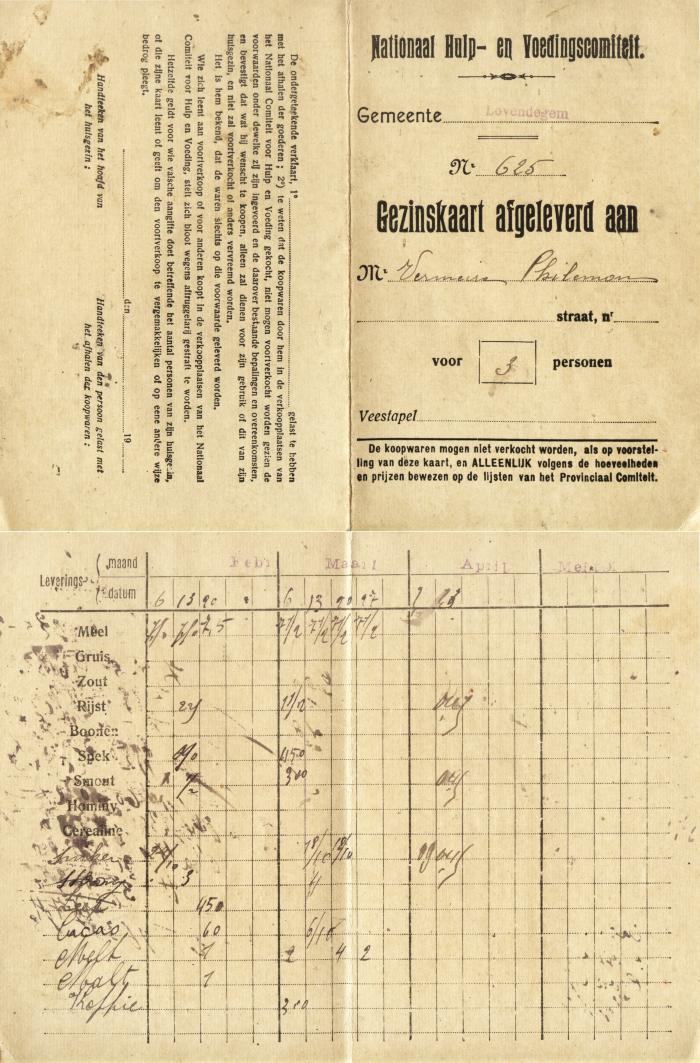 Nationaal Hulp- en Voedingscomiteit.
Gemeente Lovendegem
Nr 625
Gezinskaart afgeleverd aan
Mr Vermeire Philemon
straat, nr
voor 3 personen
Veestapel
De koopwaren mogen niet verkocht worden, als op voorstel-
ling van deze kaart, en ALLEENLIJK volgens de hoeveelheden
en prijzen bewezen op de lijsten van het Provinciaal Comiteit.
De ondergeteekende verklaart, 1° gelast te hebben
met het afhalen der goederen; 2°) te weten dat de koopwaren door hem in de verkoopplaatsen van
het Nationaal Comiteit voor Hulp en Voeding gekocht, niet mogen voortverkocht worden gezien de
voorwaarden onder dewelke zij zijn ingevoerd en de daarover bestaande bepalingen en overeenkomsten,
en bevestigt dat wat hij wenscht te koopen, alleen zal dienen voor zijn gebruik of dit van zijn
huisgezin, en niet zal voortverkocht of anders vervreemd worden.
Het is hem bekend, dat de waren slechts op die voorwaarde geleverd worden.
Wie zich leent aan voortverkoop of voor anderen koopt in de verkoopplaatsen van het Nationaal
Comiteit voor Hulp en Voeding, stelt zich bloot wegens aftruggelarij gestraft te worden.
Hetzelfde geldt voor wie valsche aangifte doet betreffende het aantal personen van zijn huisgezin,
of die zijne kaart leent of geeft om den voortverkoop te vergemakkelijken of op eene andere wijze
bedrog pleegt.
den 19
Handteeken van het hoofd van
het huisgezin:
Handteeken van den persoon gelast met
het afhalen der koopwaren:
Leverings- maand Febr Maart April Mei
datum 6 13 20 6 13 20 27 23
Meel 7,5 7 1/2 7 1/2 7 1/2 7 1/2
Gruis
Zout
Rijst
Boonen
Spek 450
Smout 1/2 300
Hominy
Cerealine
Suiker
3 4
450
Cacao 60
Melk 1 2 4 2
Malt 1
Koffie 300